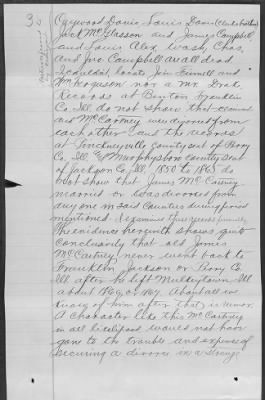 3
Ozgwood Davis Louis Davis
Jack McGlasson and James Campbell
and Louis Alex, Wash, Chas,
and Jno Campbell are all dead.
I couldn't locate Jim Funnell and
Wm Ferguson nor a Mr. Drake.
Records at Benton Franklin
Co. Ill. do not show that
and McCartney were divorced from
each other and the records
at Pinckneyville County seat of Perry
Co Ill. & Murphysboro county seat
of Jackson Co. Ill. 1850 to 1865 do
not show that James McCartney
married or was divorced from
any one in said Counties during period
mentioned. I examined these records
The evidence herewith shows quite
conclusively that old James
McCartney never went back to
Franklin Jackson or Perry Co.
Ill after he left Mulkeytown Ill
about 1866 or 1867. About all we
know of him after that is rumor.
A character like this McCartney
in all likelihood would not have
gone to the trouble and expense of
securing a divorce in a strange